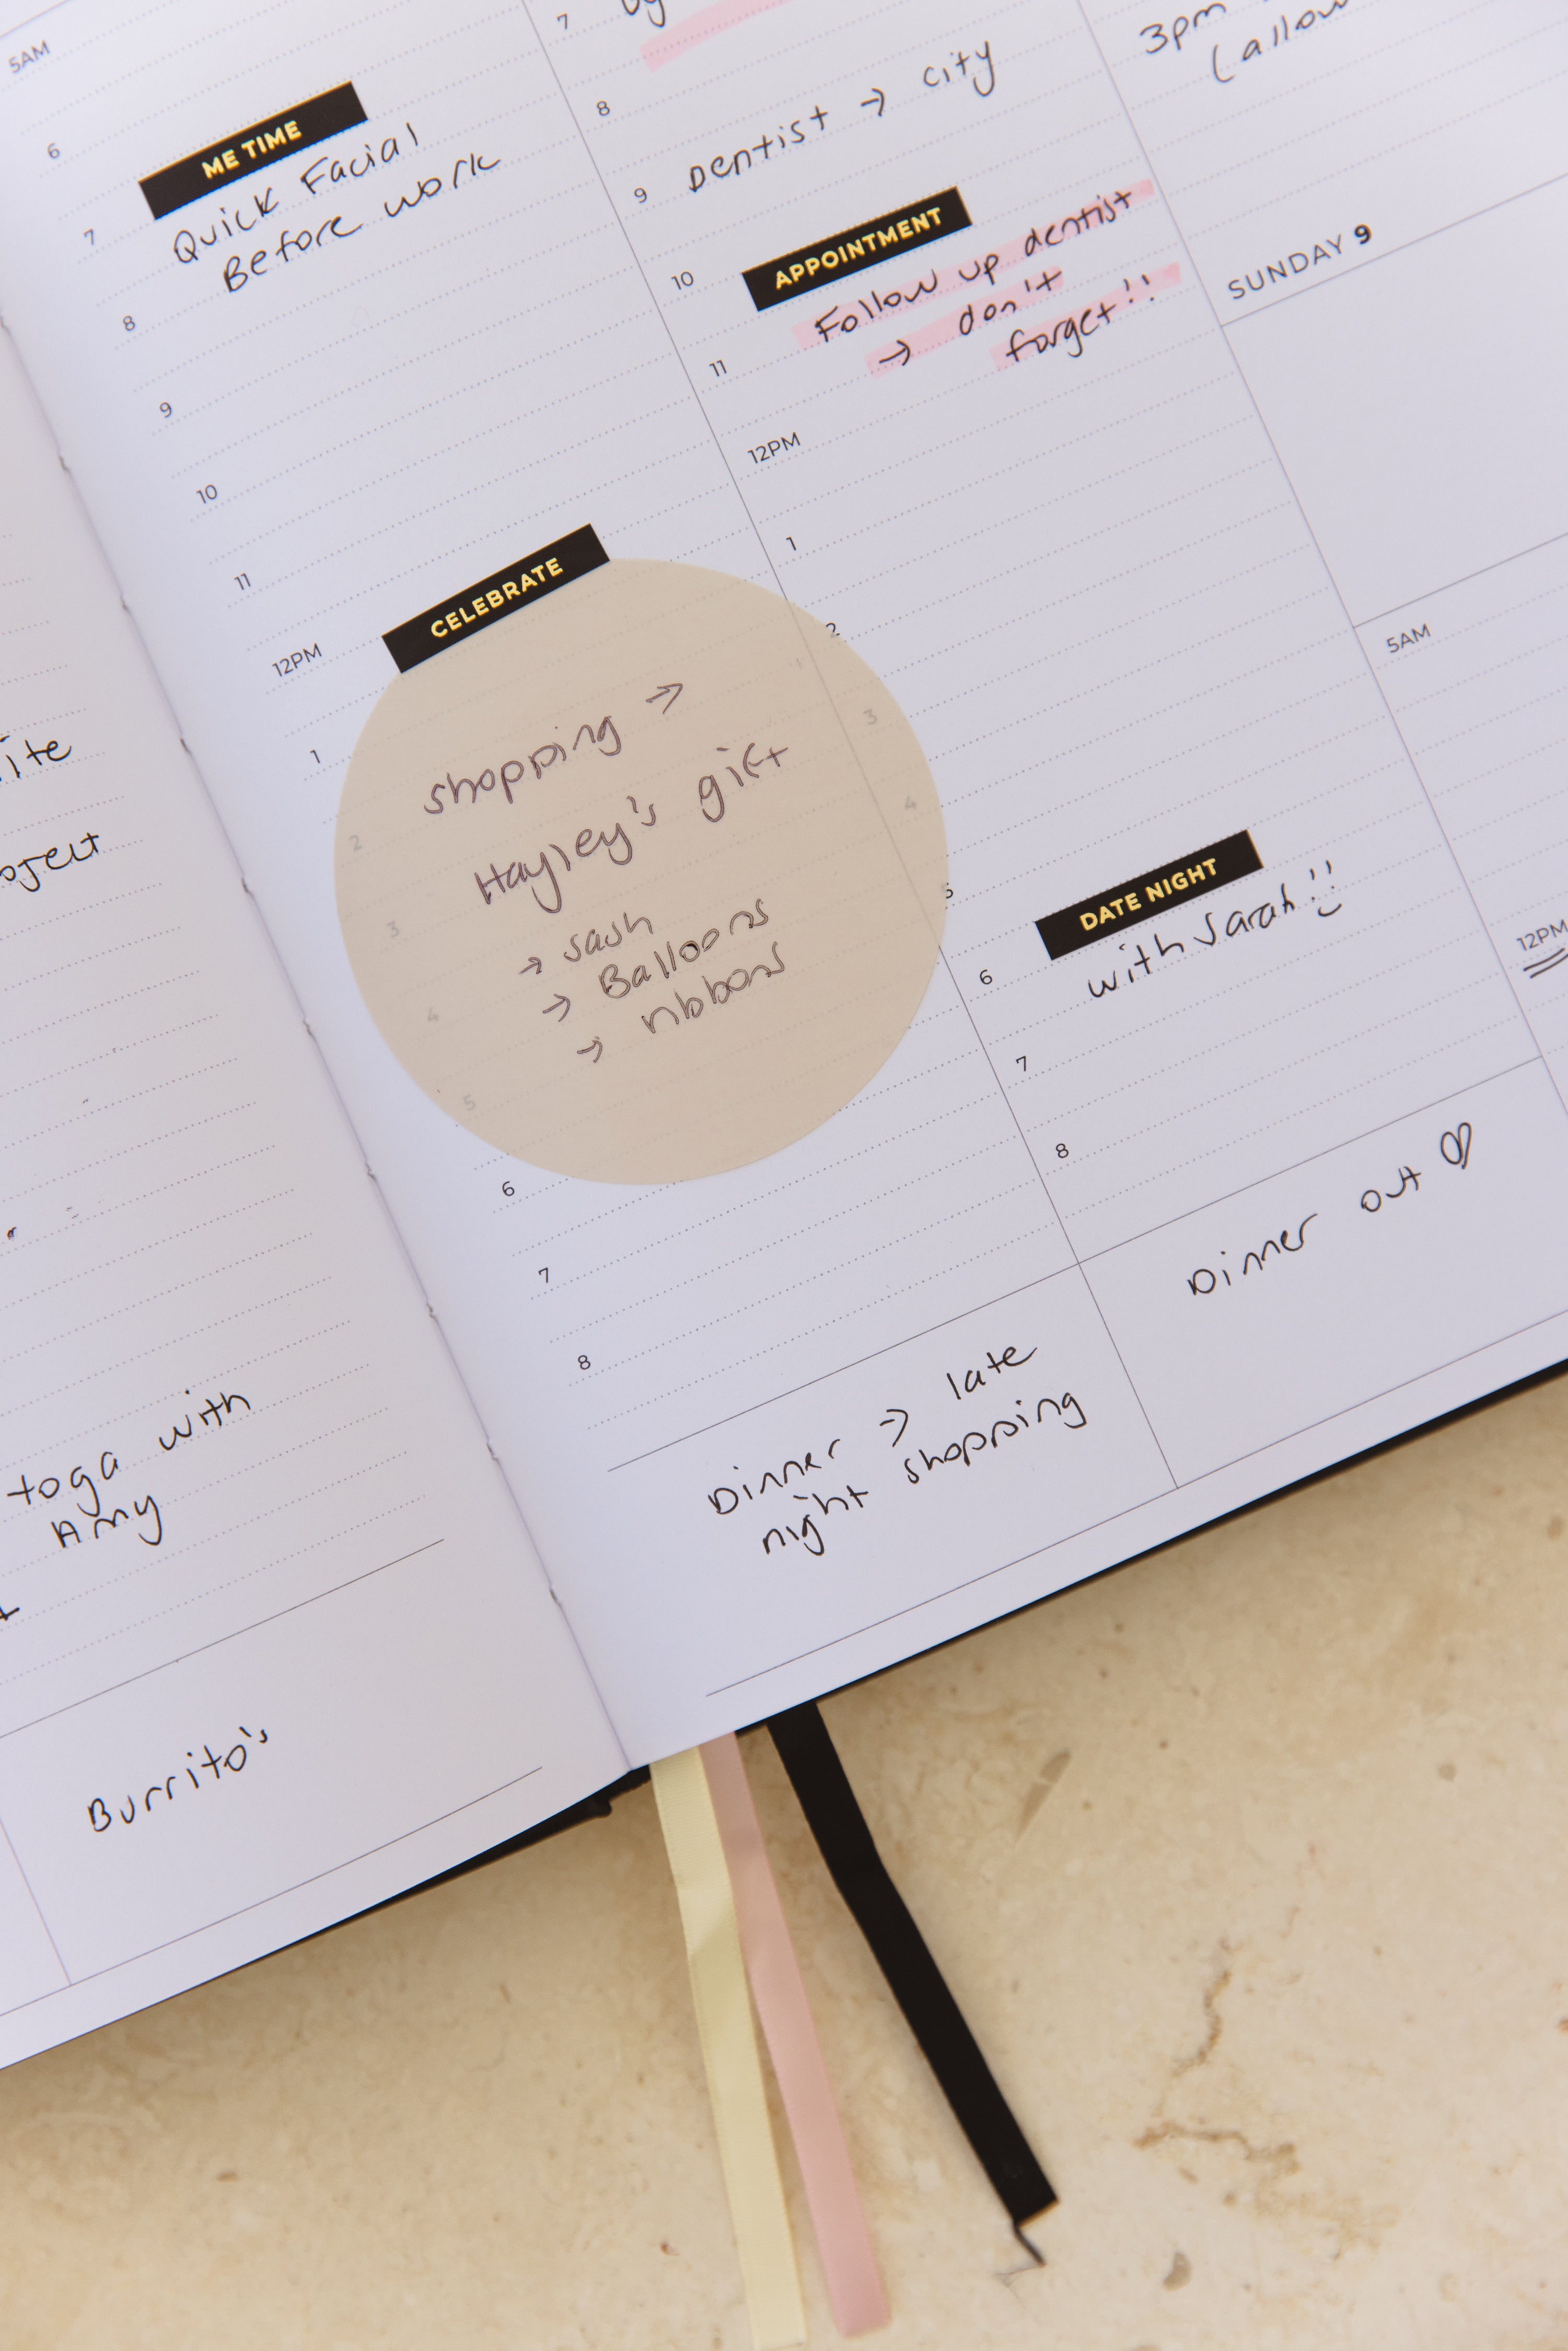 ite
oject
toga with
Amy
Burrito's
5AM
6
ME TIME
7
Quick Facial
Before work
8
9
10
11
CELEBRATE
12PM
1
shopping →
2
Hayley's gift
3
→ sash
→ Balloons
4
→ ribbons
5
6
7
8
Dinner → late
night shopping
7
8
Dentist → city
9
APPOINTMENT
10
Follow up dentist
→ don't
forget!!
11
12PM
1
2
3
4
5
DATE NIGHT
6
with Sarah!!
7
8
Dinner out ♡
3pm
(allow
SUNDAY 9
5AM
12PM